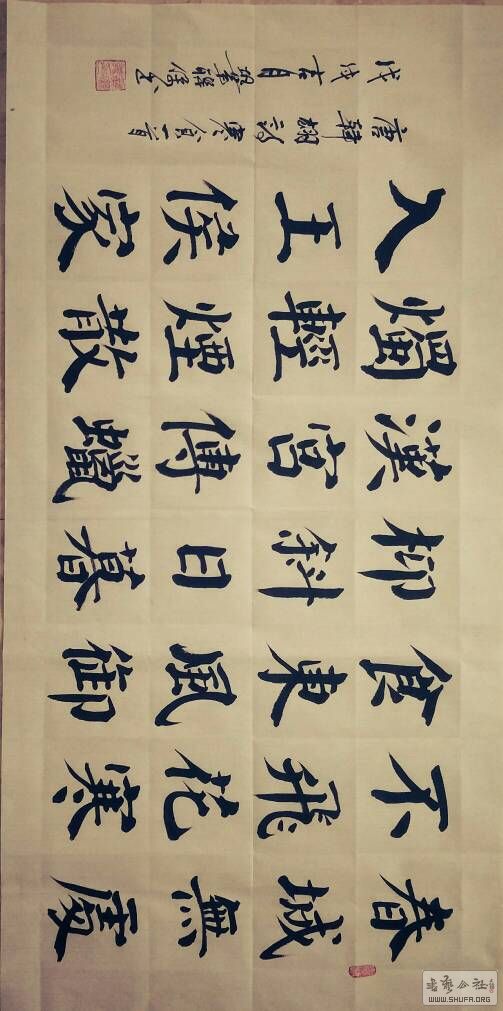 春城無處
不飛花寒
食東風御
柳斜日暮
漢宮傳蠟
燭輕煙散
入王侯家
唐韓翃詩寒食一首
戊戌
书艺公社
WWW.SHUFA.ORG